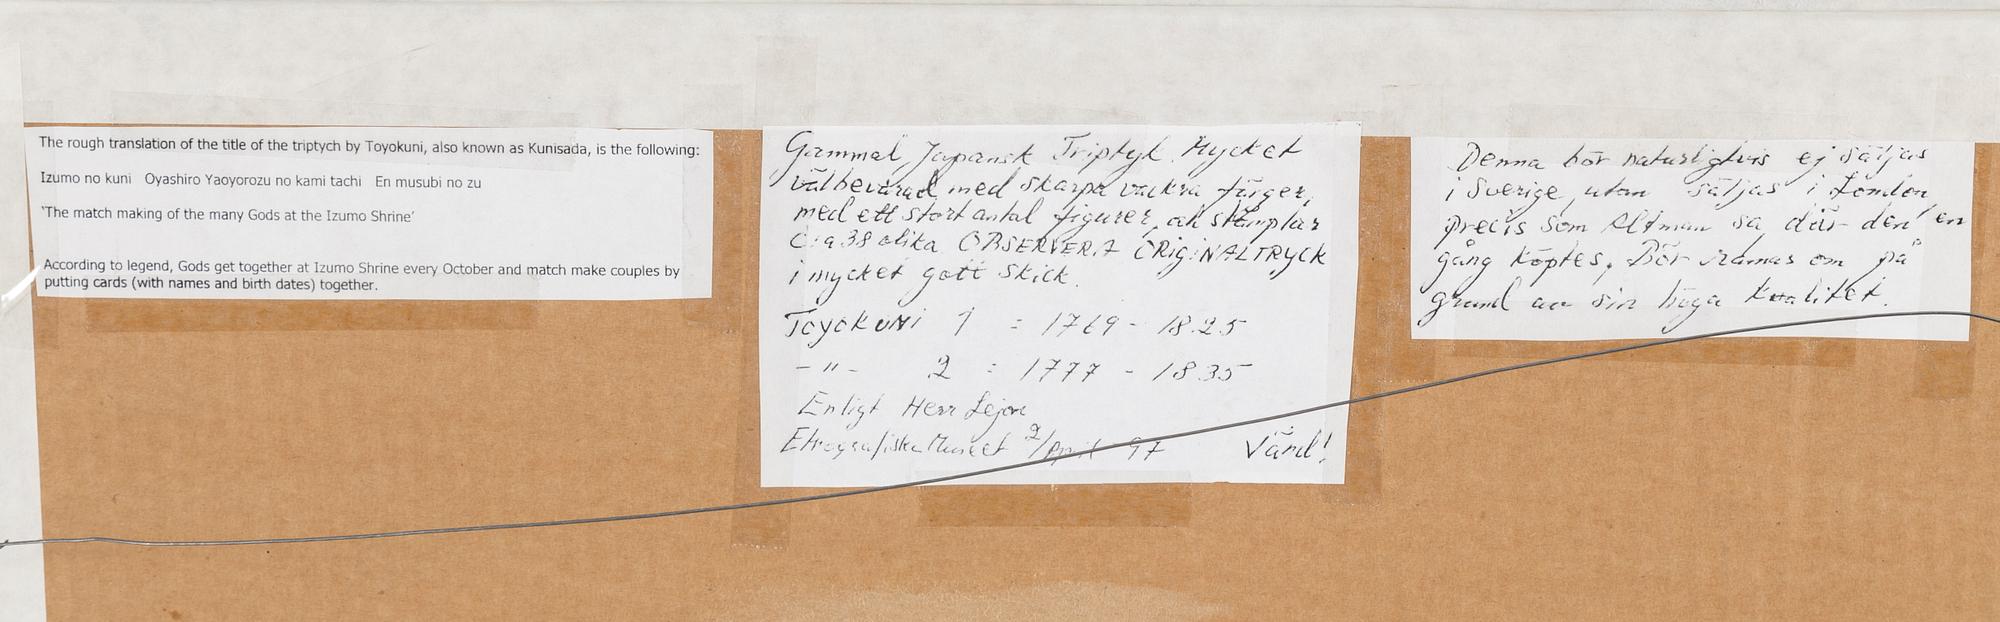 The rough translation of the title of the triptych by Toyokuni, also known as Kunisada, is the following:
Izumo no kuni Oyashiro Yaoyorozu no kami tachi En musubi no zu
'The match making of the many Gods at the Izumo Shrine'
According to legend, Gods get together at Izumo Shrine every October and match make couples by
putting cards (with names and birth dates) together.
Gammal Japansk Triptyk. Mycket
välbevarad med skarpa vackra färger,
med ett stort antal figurer, och stämplar
c:a 38 olika OBSERVERA ORIGINALTRYCK
i mycket gott skick.
Toyokuni 1 = 1769 - 1825
- " - 2 = 1777 - 1835
Enligt Herr
Etnografiska Museet 2/April 97 Värd!
Denna bör naturligtvis ej säljas
i Sverige, utan säljas i London,
precis som Altman sa, där den en
gång köptes. Bör ramas om på
grund av sin höga kvalitet.